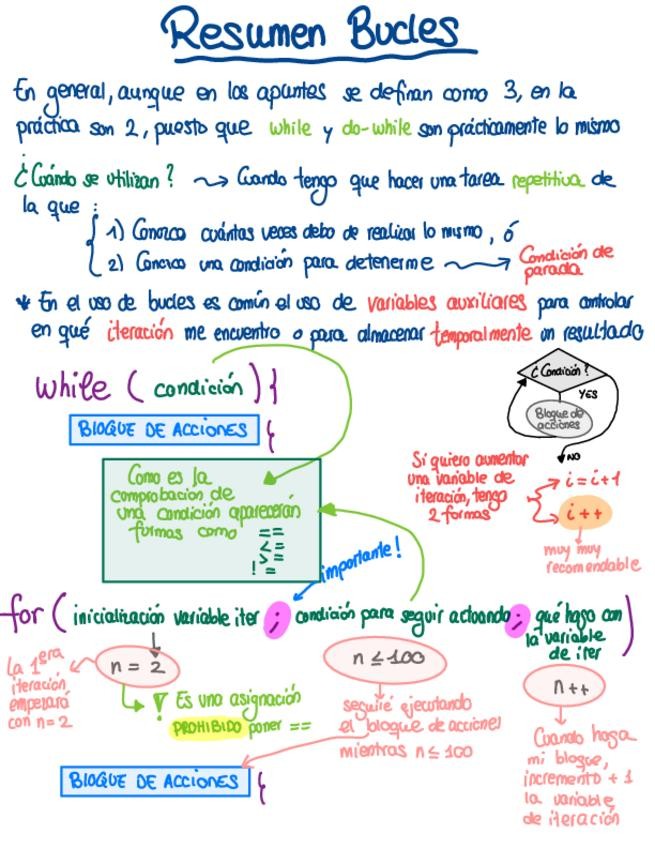 Resumen Bucles
En general, aunque en los apuntes se definan como 3, en la
práctica son 2, puesto que while y do-while son prácticamente lo mismo
¿Cuándo se utilizan? → Cuando tengo que hacer una tarea repetitiva de
la que :
1) Conozco cuántas veces debo de realizar lo mismo, ó
2) Conozco una condición para detenerme → Condición de
parada
* En el uso de bucles es común el uso de variables auxiliares para controlar
en qué iteración me encuentro o para almacenar temporalmente un resultado
while ( condición ) {
BLOQUE DE ACCIONES {
Como es la
comprobación de
una condición aparecerán
formas como ==
<=
>=
!=
¿Condición?
YES
Bloque de
acciones
NO
Si quiero aumentar
una variable de
iteración, tengo
2 formas
i = i+1
i++
muy muy
recomendable
importante!
for ( inicialización variable iter ; condición para seguir actuando ; qué hago con
la variable
de iter )
n = 2
la 1era
iteración,
empezará
con n=2
! Es una asignación
PROHIBIDO poner ==
n ≤ 100
seguiré ejecutando
el bloque de acciones
mientras n ≤ 100
n++
Cuando haga
mi bloque,
incremento +1
la variable
de iteración
BLOQUE DE ACCIONES {